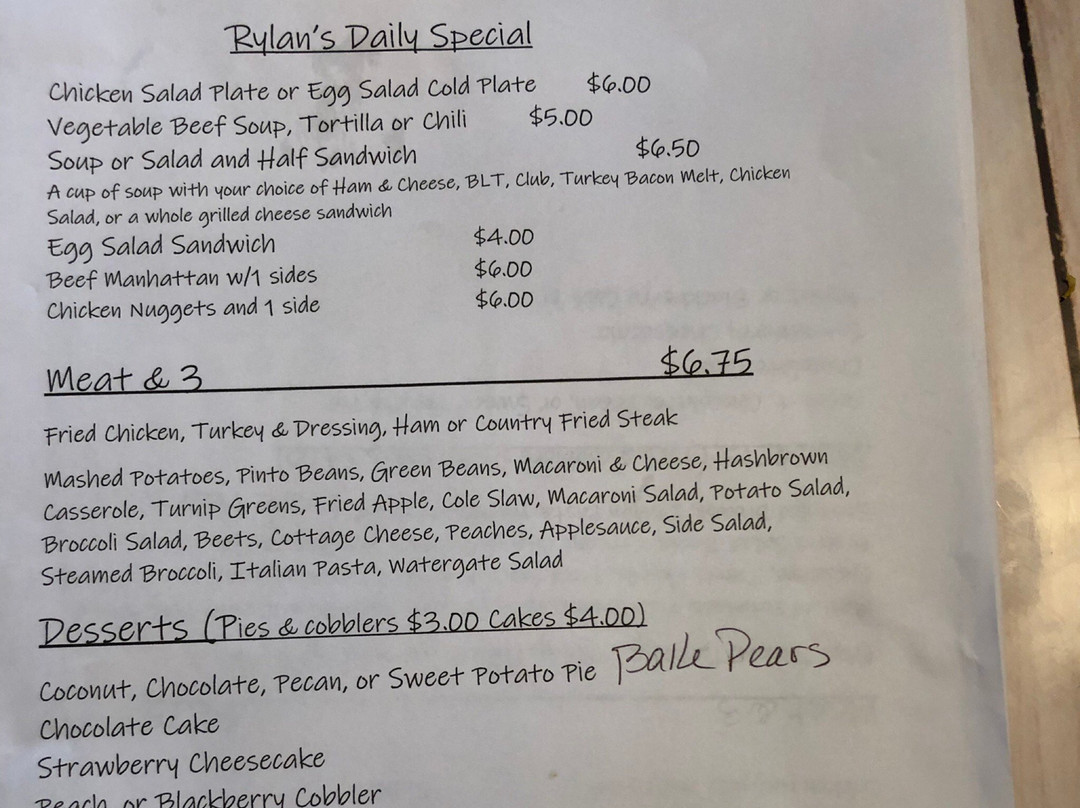 Rylan's Daily Special
Chicken Salad Plate or Egg Salad Cold Plate $6.00
Vegetable Beef Soup, Tortilla or Chili $5.00
Soup or Salad and Half Sandwich $6.50
A cup of soup with your choice of Ham & Cheese, BLT, Club, Turkey Bacon Melt, Chicken
Salad, or a whole grilled cheese sandwich
Egg Salad Sandwich $4.00
Beef Manhattan w/1 sides $6.00
Chicken Nuggets and 1 side $6.00
Meat & 3 $6.75
Fried Chicken, Turkey & Dressing, Ham or Country Fried Steak
Mashed Potatoes, Pinto Beans, Green Beans, Macaroni & Cheese, Hashbrown
Casserole, Turnip Greens, Fried Apple, Cole Slaw, Macaroni Salad, Potato Salad,
Broccoli Salad, Beets, Cottage Cheese, Peaches, Applesauce, Side Salad,
Steamed Broccoli, Italian Pasta, Watergate Salad
Desserts (Pies & cobblers $3.00 Cakes $4.00)
Coconut, Chocolate, Pecan, or Sweet Potato Pie Pears
Chocolate Cake
Strawberry Cheesecake
Peach or Blackberry Cobbler